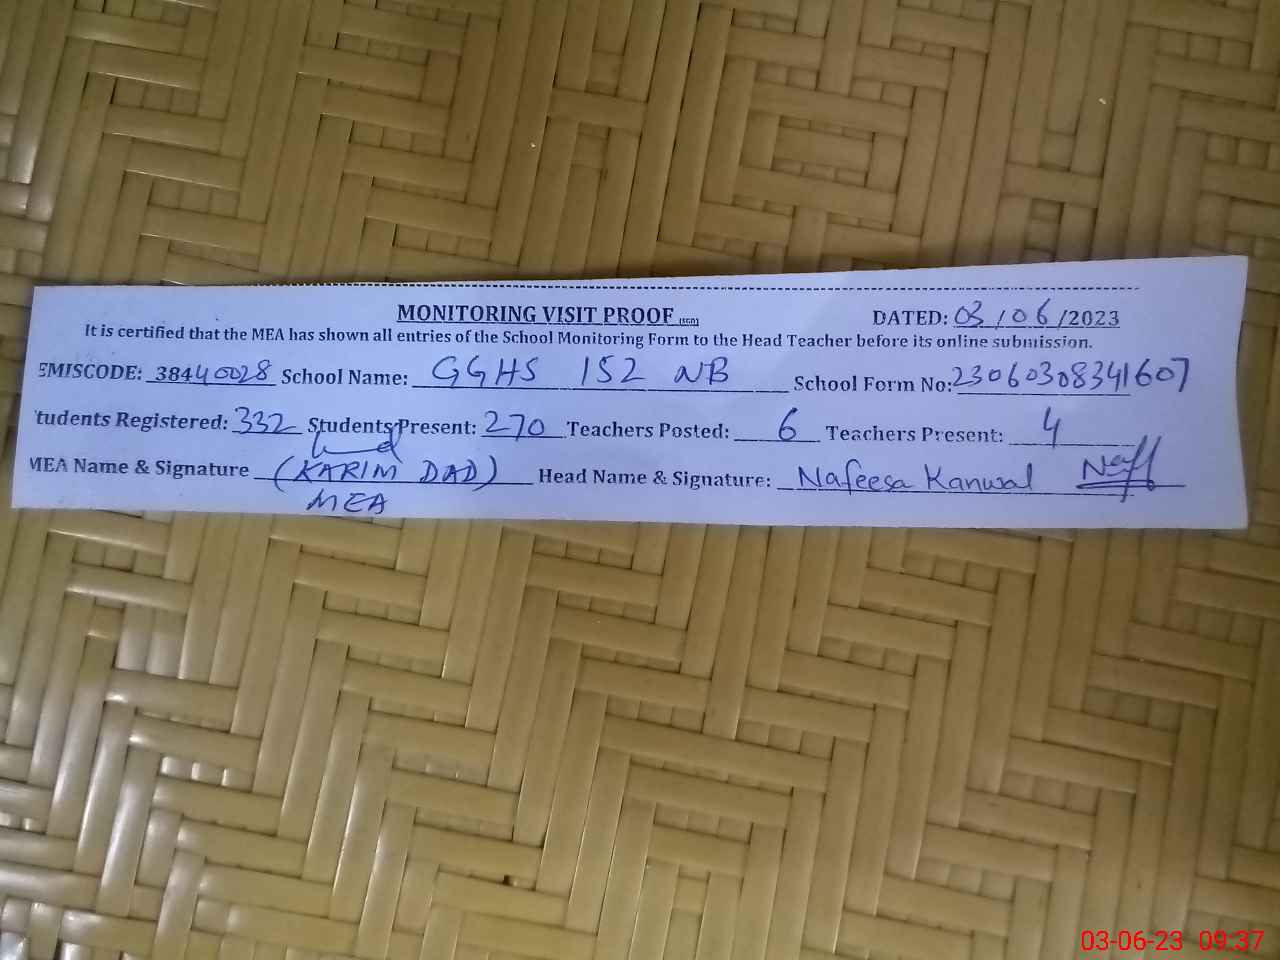 MONITORING VISIT PROOF (SED) DATED: 03/06/2023
It is certified that the MEA has shown all entries of the School Monitoring Form to the Head Teacher before its online submission.
EMISCODE: 38440028 School Name: GGHS 152 NB School Form No: 23060308341607
tudents Registered: 332 Students Present: 270 Teachers Posted: 6 Teachers Present: 4
MEA Name & Signature (KARIM DAD) Head Name & Signature: Nafeesa Kanwal Naff
MEA
03-06-23 09:37